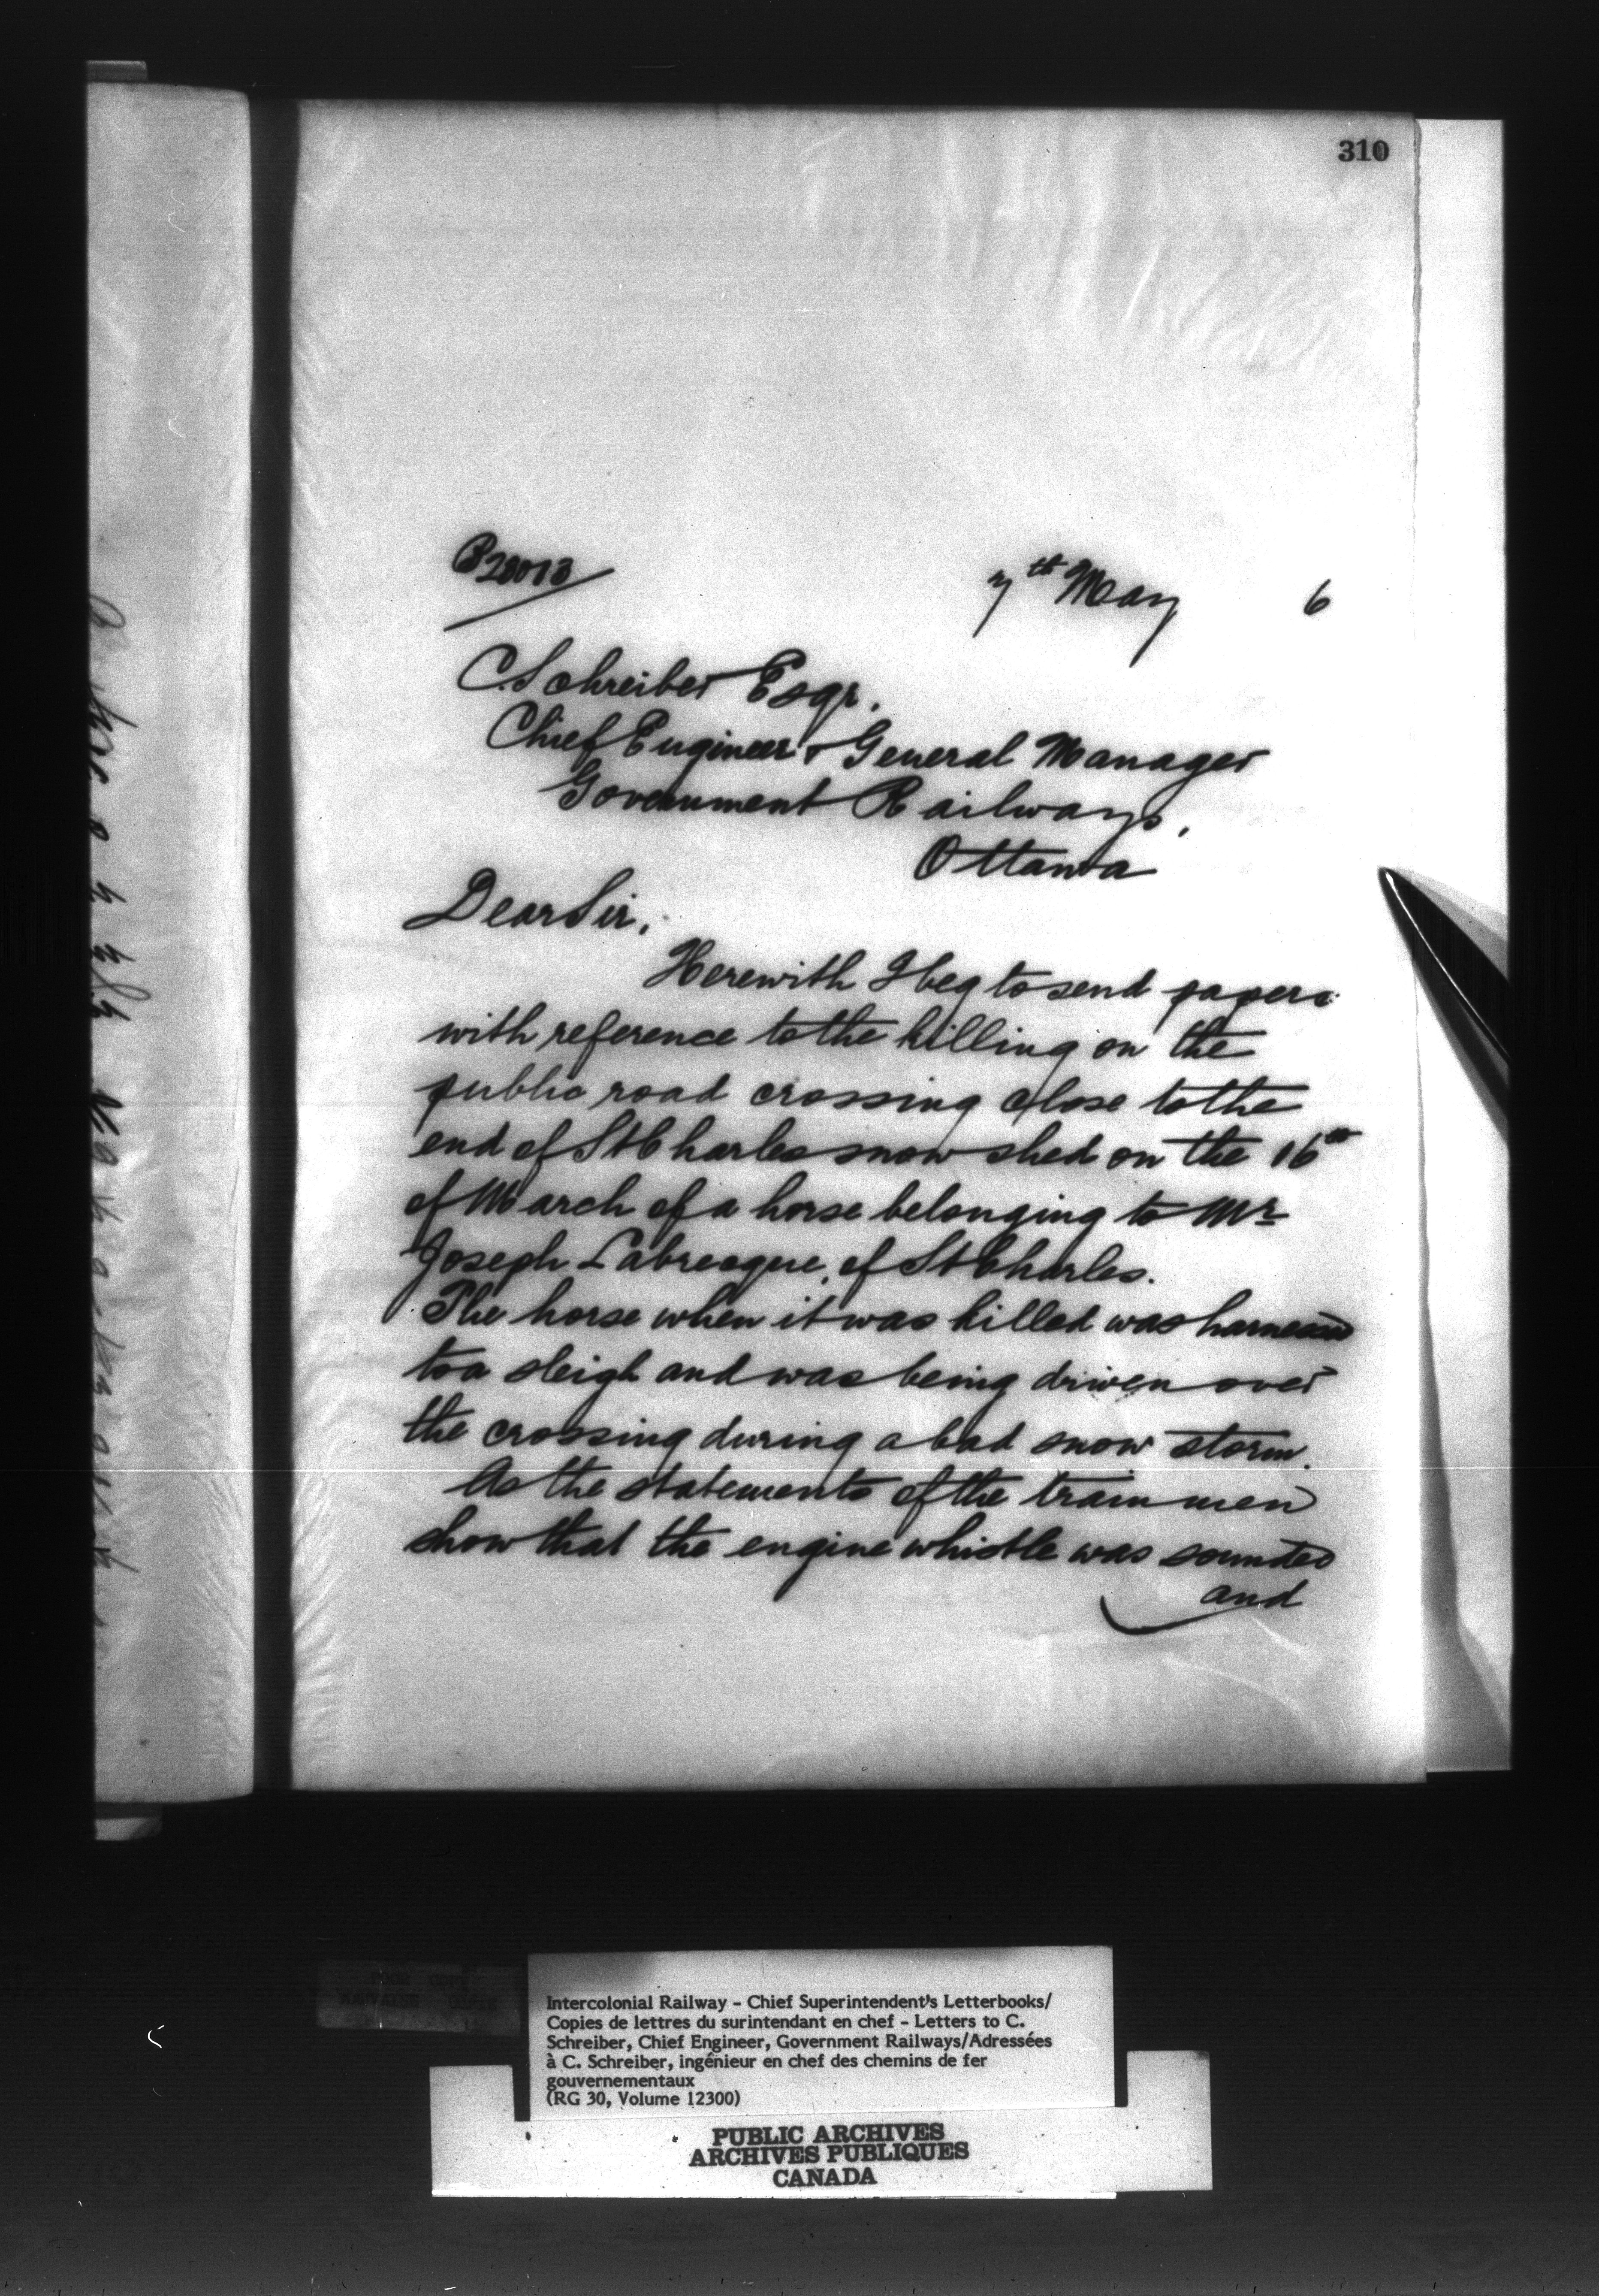 310
B20013
7th May 6
C. Schreiber Esqr.
Chief Engineer & General Manager
Government Railways,
Ottawa
Dear Sir,
Herewith I beg to send papers
with reference to the killing on the
public road crossing close to the
end of St Charles snow shed on the 16th
of March of a horse belonging to Mr
Joseph Labrecque, of St Charles.
The horse when it was killed was harnessed
to a sleigh and was being driven over
the crossing during a bad snow storm.
As the statements of the train men
show that the engine whistle was sounded
and
Intercolonial Railway - Chief Superintendent's Letterbooks/
Copies de lettres du surintendant en chef - Letters to C.
Schreiber, Chief Engineer, Government Railways/Adressées
à C. Schreiber, ingénieur en chef des chemins de fer
gouvernementaux
(RG 30, Volume 12300)
PUBLIC ARCHIVES
ARCHIVES PUBLIQUES
CANADA